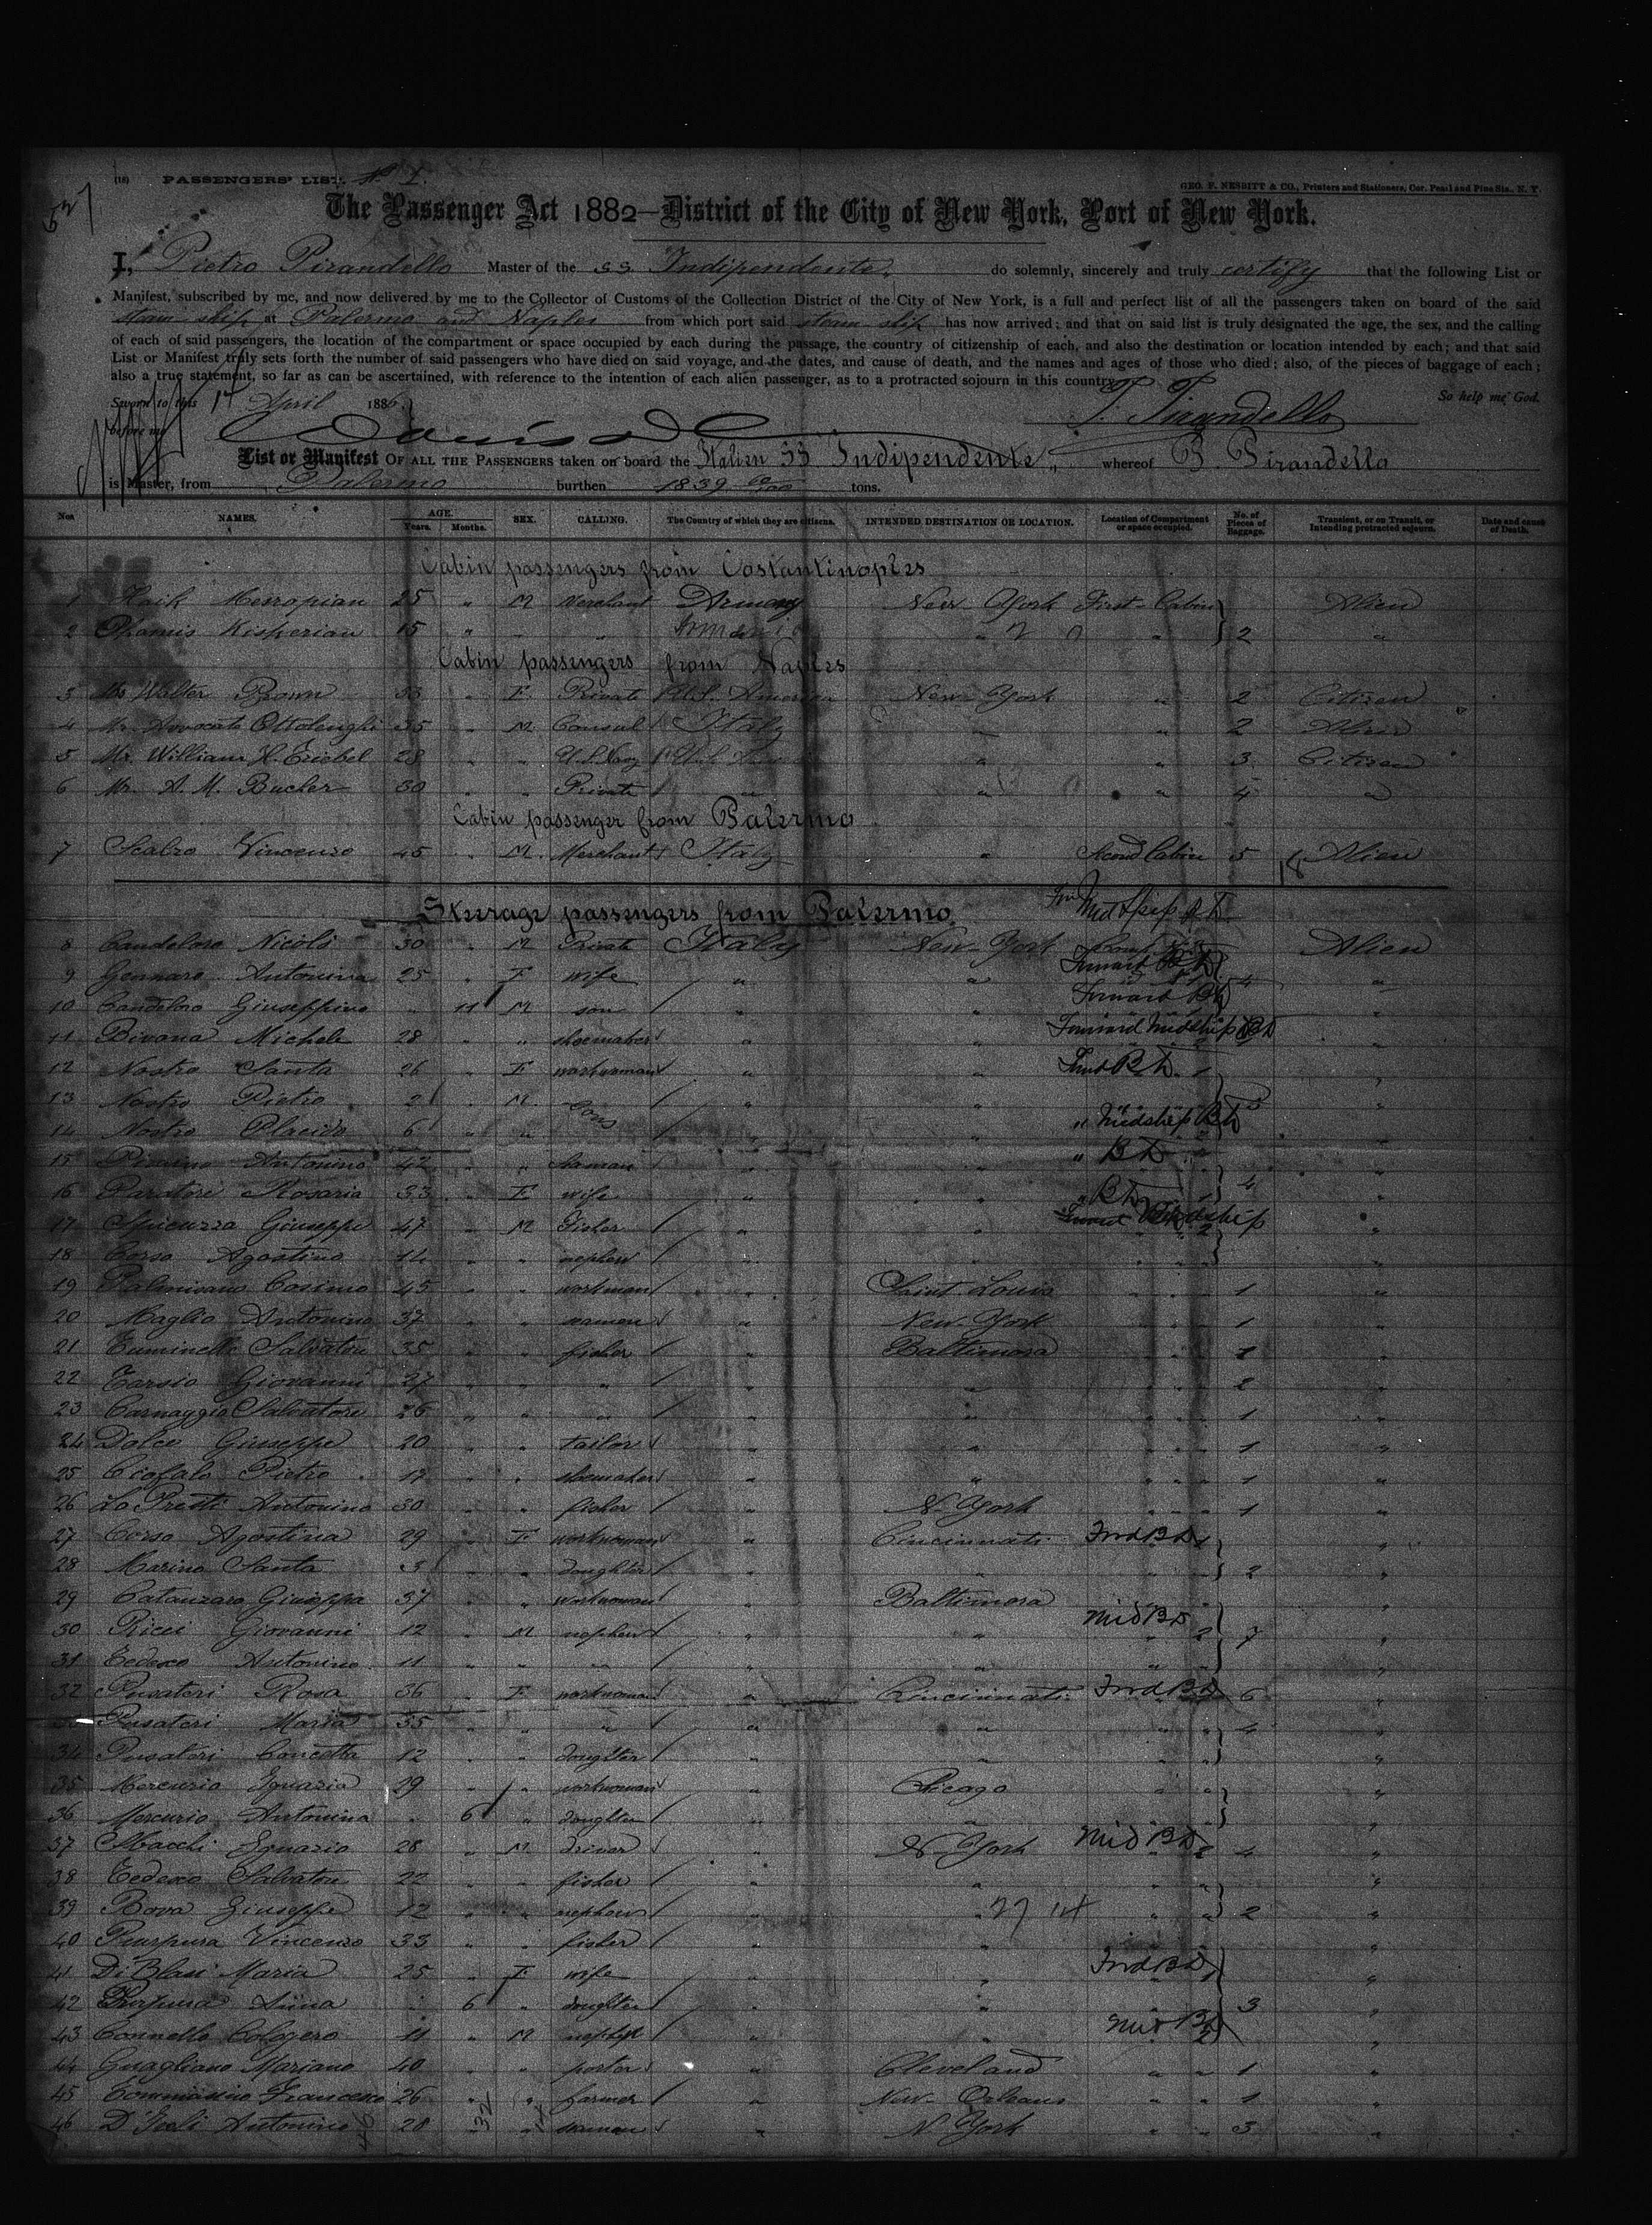 (18) PASSENGERS' LIST. No 1.
GEO. F. NESBITT & CO., Printers and Stationers, Cor. Pearl and Pine Sts., N. Y.
The Passenger Act 1882—District of the City of New York, Port of New York.
I, Pietro Pirandello Master of the SS. Indipendente do solemnly, sincerely and truly certify that the following List or
Manifest, subscribed by me, and now delivered by me to the Collector of Customs of the Collection District of the City of New York, is a full and perfect list of all the passengers taken on board of the said
steam ship at Palermo and Naples from which port said steam ship has now arrived; and that on said list is truly designated the age, the sex, and the calling
of each of said passengers, the location of the compartment or space occupied by each during the passage, the country of citizenship of each, and also the destination or location intended by each; and that said
List or Manifest truly sets forth the number of said passengers who have died on said voyage, and the dates, and cause of death, and the names and ages of those who died; also, of the pieces of baggage of each;
also a true statement, so far as can be ascertained, with reference to the intention of each alien passenger, as to a protracted sojourn in this country.
So help me God.
Sworn to this 17 April 1886
before me
P. Pirandello
List or Manifest OF ALL THE PASSENGERS taken on board the Italien SS Indipendente" whereof P. Pirandello
is Master, from Palermo burthen 1839 tons.
Nos. NAMES. AGE. Years. Months. SEX. CALLING. The Country of which they are citizens. INTENDED DESTINATION OR LOCATION. Location of Compartment or space occupied. No. of Pieces of Baggage. Transient, or on Transit, or Intending protracted sojourn. Date and cause of Death.
Cabin passengers from Costantinoples
1 Haik Mesropian 25 " M Merchant Armeny New-York First Cabin Alien
2 Kisherian 15 " " " " " 2 "
Cabin passengers from Naples
3 Ms Walter Brown 33 " F Private U.S. America New York " 2 Citizen
4 Mr. Avvocato Ottolenghi 35 " M Consul Italy " " 2 Alien
5 Mr. William H. 28 " " U.S. Navy " " 3 Citizen
6 Mr. A. M. Bucher 30 " " Private " " " 4 "
Cabin passenger from Palermo
7 Scalzo Vincenzo 45 " M. Merchant Italy " Second Cabin 5 Alien
Steerage passengers from Palermo Midship
8 Candeloro Nicolò 30 " M Private Italy New-York Alien
9 Gennaro Antonina 25 " F wife " " Forward 4 "
10 Candeloro Giuseppino " 11 M son " " Forward "
11 Bivona Michele 28 " " shoemaker " " Forward Midship "
12 Nostro Santa 26 " F workwoman " " "
13 Nostro Pietro 2 " M sons " " "
14 Nostro Placido 6 " " " " " Midship "
15 Antonino 42 " " seaman " " "
16 Paratore Rosaria 33 " F wife " " 4 "
17 Spicuzza Giuseppe 47 " M Fisher " " Midship "
18 Corso Agostino 14 " " nephew " " "
19 Palmisano Cosimo 45 " " workman " Saint Louis " 1 "
20 Maglio Antonino 37 " " seaman " New-York " 1 "
21 Tuminello Salvatore 35 " " fisher " Baltimora " 1 "
22 Tarsio Giovanni 27 " " " " " " 2 "
23 Carnaggio Salvatore 26 " " " " " " 1 "
24 Dolce Giuseppe 20 " " tailor " " " 1 "
25 Ciofalo Pietro 17 " " shoemaker " " " 1 "
26 Lo Presti Antonino 30 " " fisher " N-York " 1 "
27 Corso Agostina 29 " F workwoman " Cincinnati Fwd BD "
28 Marino Santa 3 " " doughter " " " 2 "
29 Catanzaro Giuseppa 37 " " workwoman " Baltimora "
30 Ricci Giovanni 12 " M nephew " " Mid BD 7 "
31 Tedesco Antonino 11 " " " " " " "
32 Pusateri Rosa 36 " F workwoman " Cincinnati Fwd BD 6 "
Pusateri Maria 35 " " " " " " 4 "
34 Pusateri Concetta 12 " " doughter " " " "
35 Mercurio Ignazia 29 " " workwoman " Chicago " "
36 Mercurio Antonina " 6 " doughter " " " "
37 Macchi Ignazio 28 " M driver " N-York Mid BD 4 "
38 Tedesco Salvatore 22 " " fisher " " " "
39 Bova Giuseppe 12 " " nephew " " " 2 "
40 Purpura Vincenzo 33 " " fisher " " "
41 Di Blasi Maria 25 " F wife " " Fwd BD "
42 Purpura Anna " 6 " doughter " " 3 "
43 Connello Calogero 11 " M nephew " " Mid BD "
44 Guagliano Mariano 40 " " porter " Cleveland " 1 "
45 Commissino Francesco 26 " " farmer " New-Orleans " 1 "
46 Antonino 28 " " seaman " N-York " 3 "